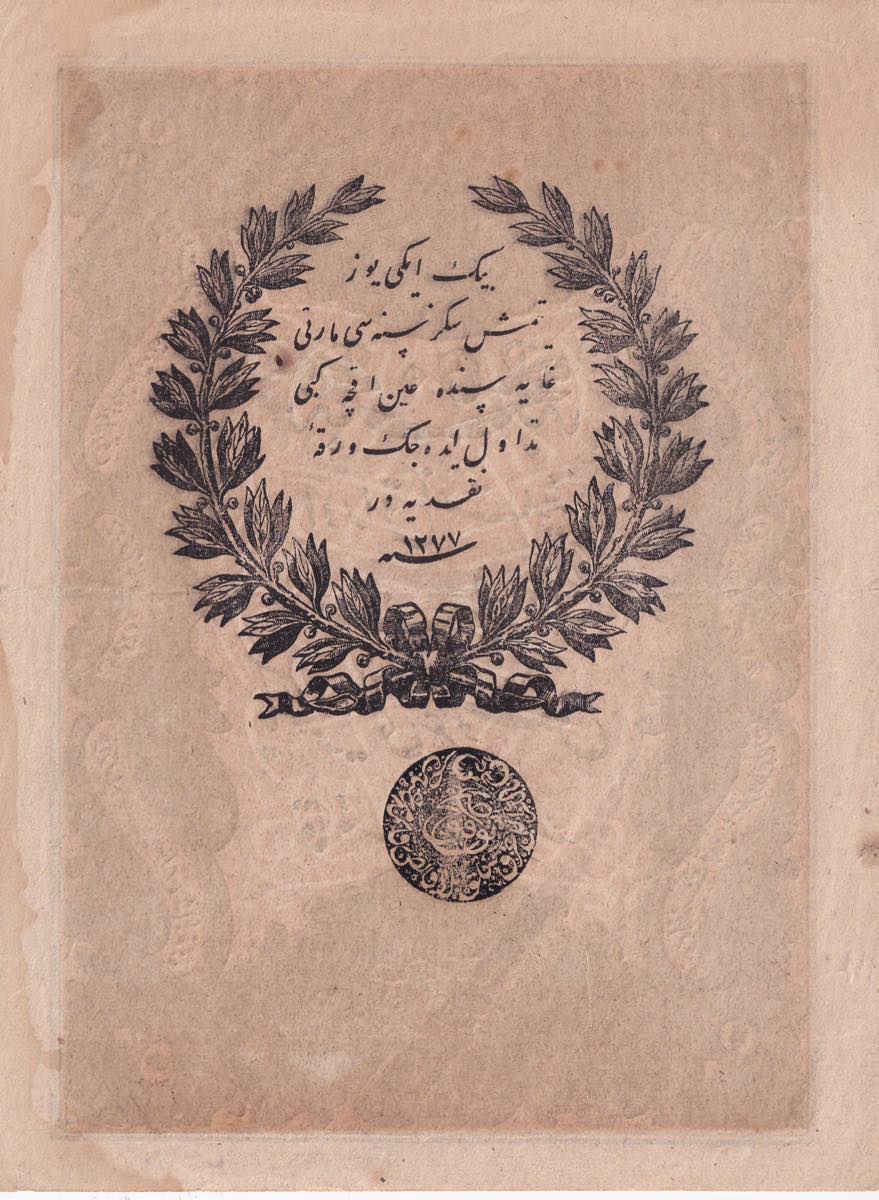 بیك ایکی یوز
یتمش سکز سنه سی مارتی
غایه سنده عین اقچه کبی
تداول ایده جك ورقهٔ
نقدیه در
سنه ١٢٧٧